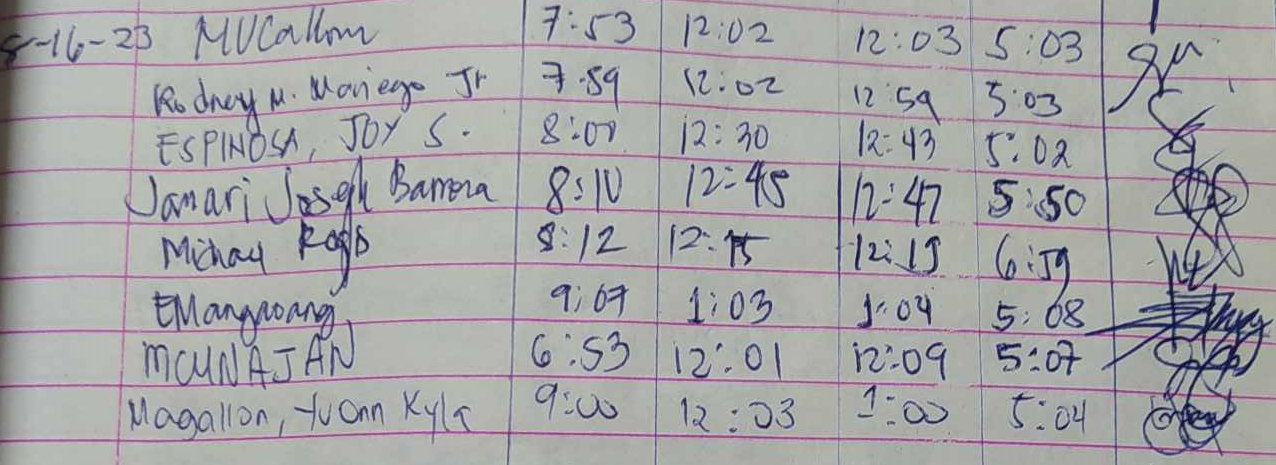 8-16-23 MVCallom 7:53 12:02 12:03 5:03
Rodney M. Mariego Jr 7:59 12:02 12:59 5:03
ESPINOSA, JOY S. 8:00 12:30 12:43 5:02
Jamari Joseph Barrera 8:10 12:45 12:47 5:50
8:12 12:15 12:19 6:59
9:07 1:03 1:04 5:08
MCUNAJAN 6:53 12:01 12:09 5:07
Magallon, Yvonn Kyla 9:00 12:03 1:00 5:04